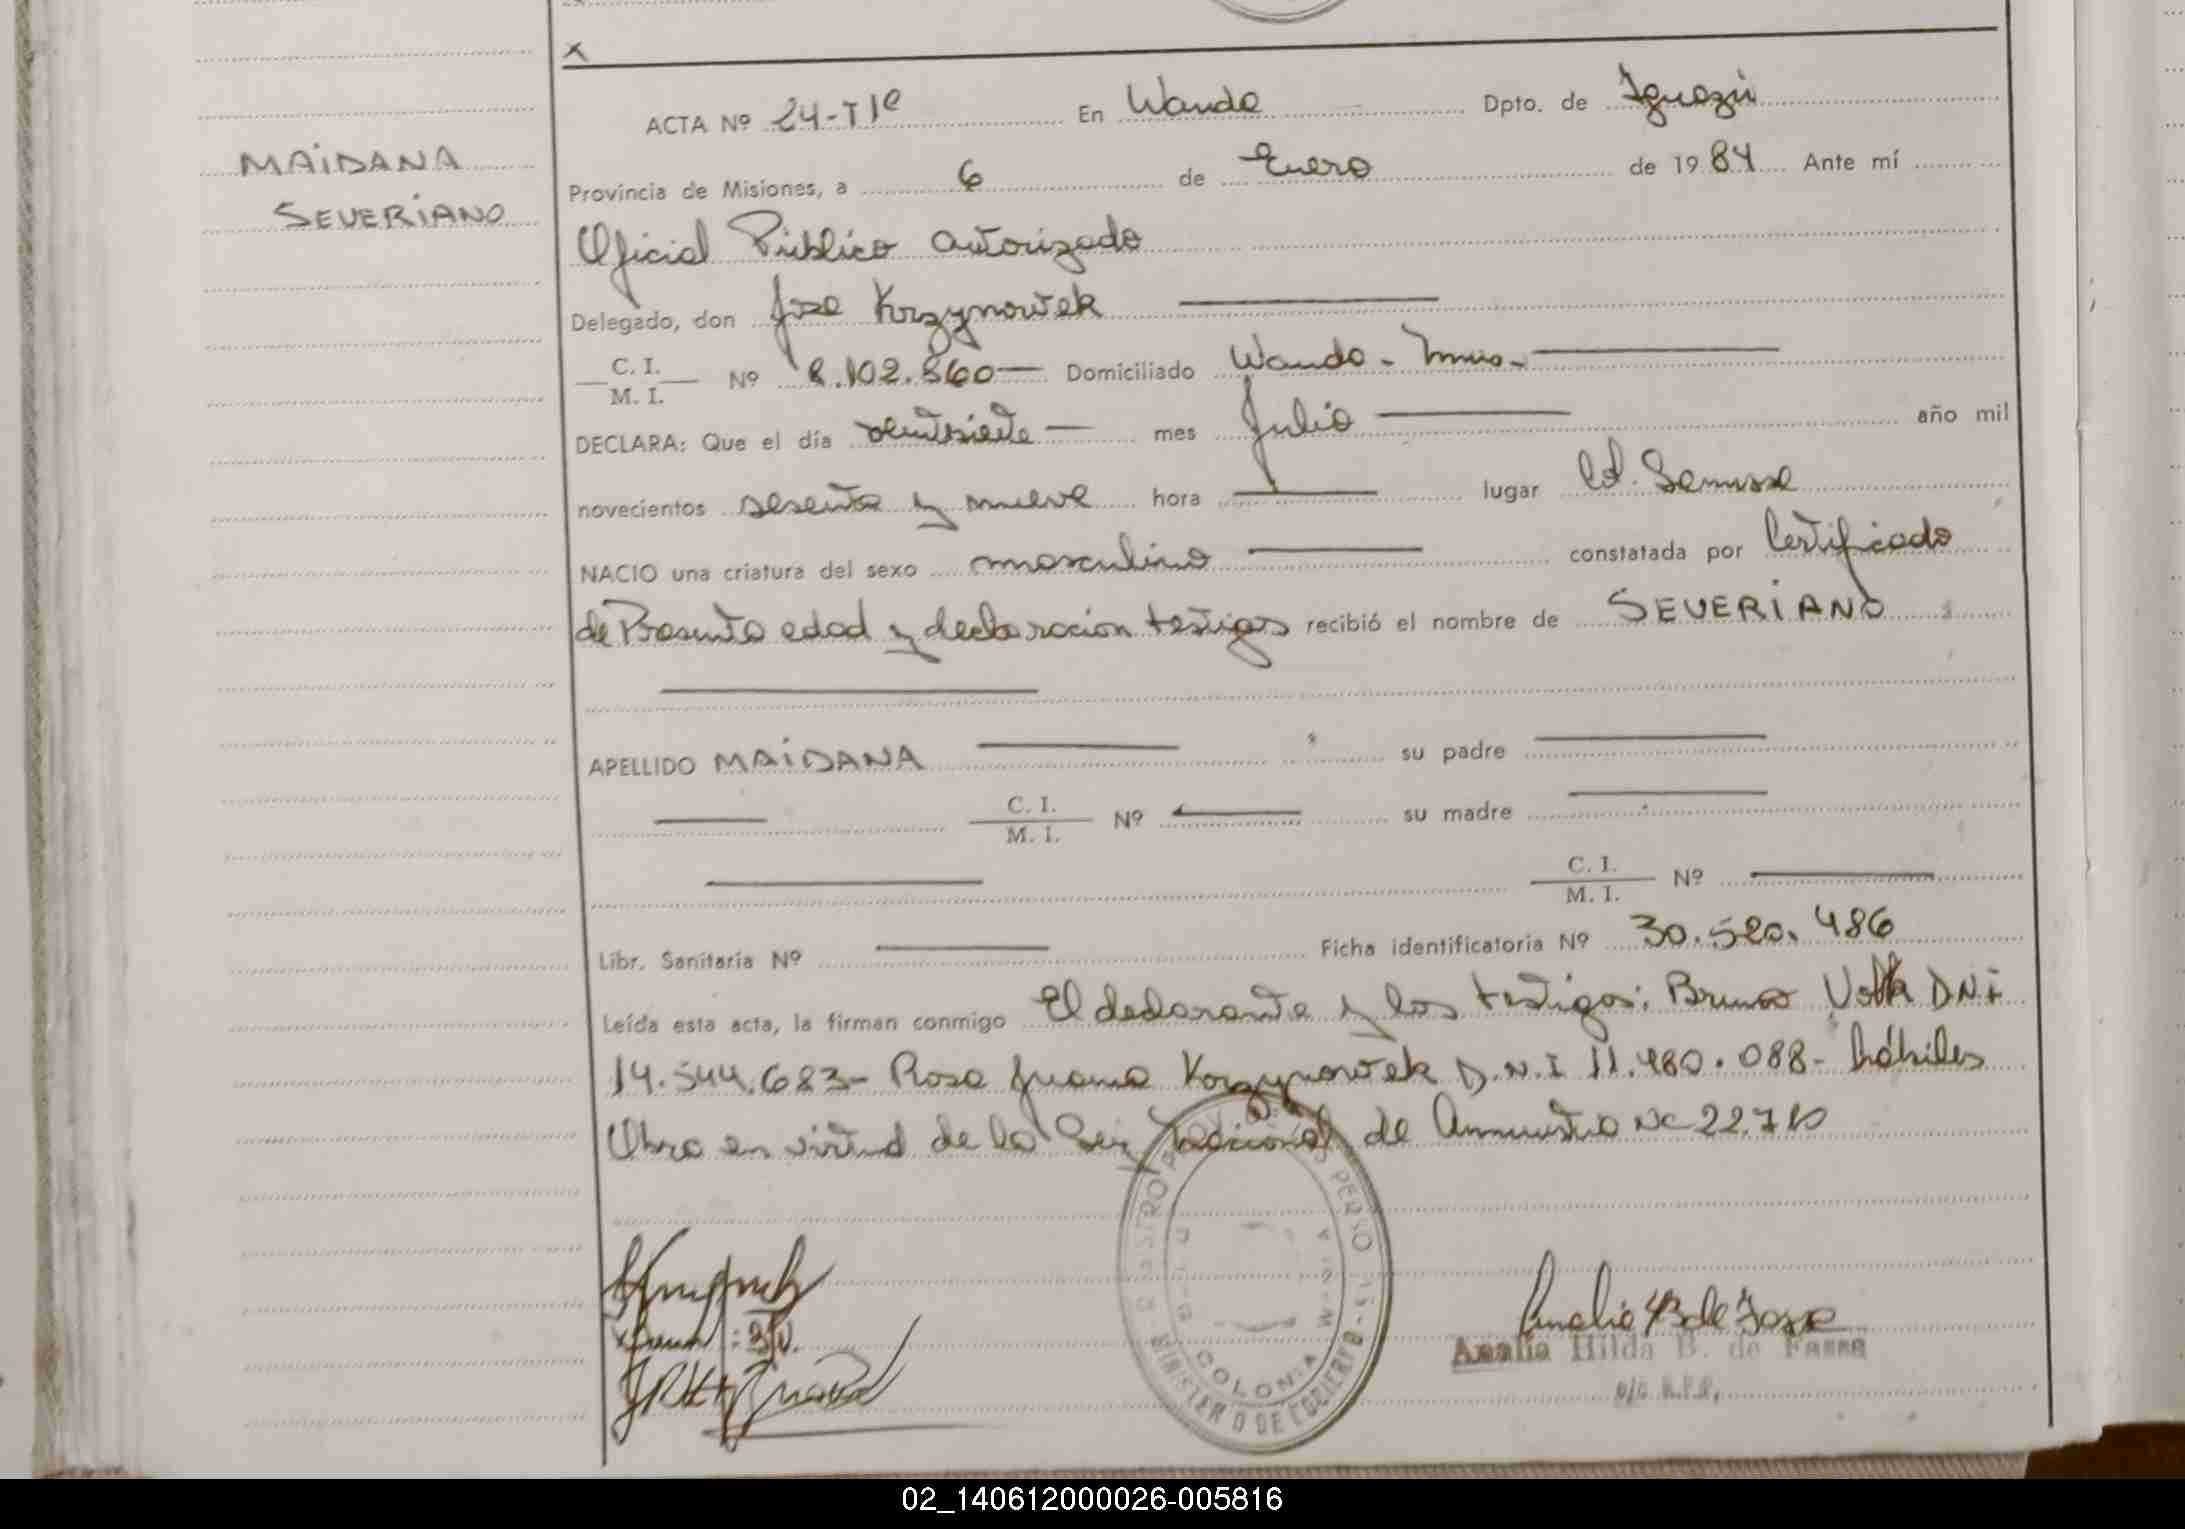 MAIDANA
SEVERIANO
x
ACTA Nº 24-T1º En Wanda Dpto. de Iguazú
Provincia de Misiones, a 6 de Enero de 1984 Ante mí
Oficial Público autorizado
Delegado, don José Korzynowek
C. I.
M. I. Nº 8.102.860 Domiciliado Wanda - Mnes -
DECLARA: Que el día veintisiete mes Julio año mil
novecientos sesenta y nueve hora lugar Col.
NACIO una criatura del sexo masculino constatada por Certificado
de Presunta edad y declaración testigos recibió el nombre de SEVERIANO
APELLIDO MAIDANA su padre
C. I.
M. I. Nº su madre
C. I.
M. I. Nº
Libr. Sanitaria Nº Ficha identificatoria Nº 30.520.486
Leída esta acta, la firman conmigo El declarante y los testigos: Bruno D.N.I
14.544.683- Rosa Juana Korzynowek D.N.I 11.480.088- hábiles
Obra en virtud de la Ley Nacional de Amnistía Nº 22.710
COLONIA
MINISTERIO DE GOBIERNO
Amalia Hilda B. de
02_140612000026-005816